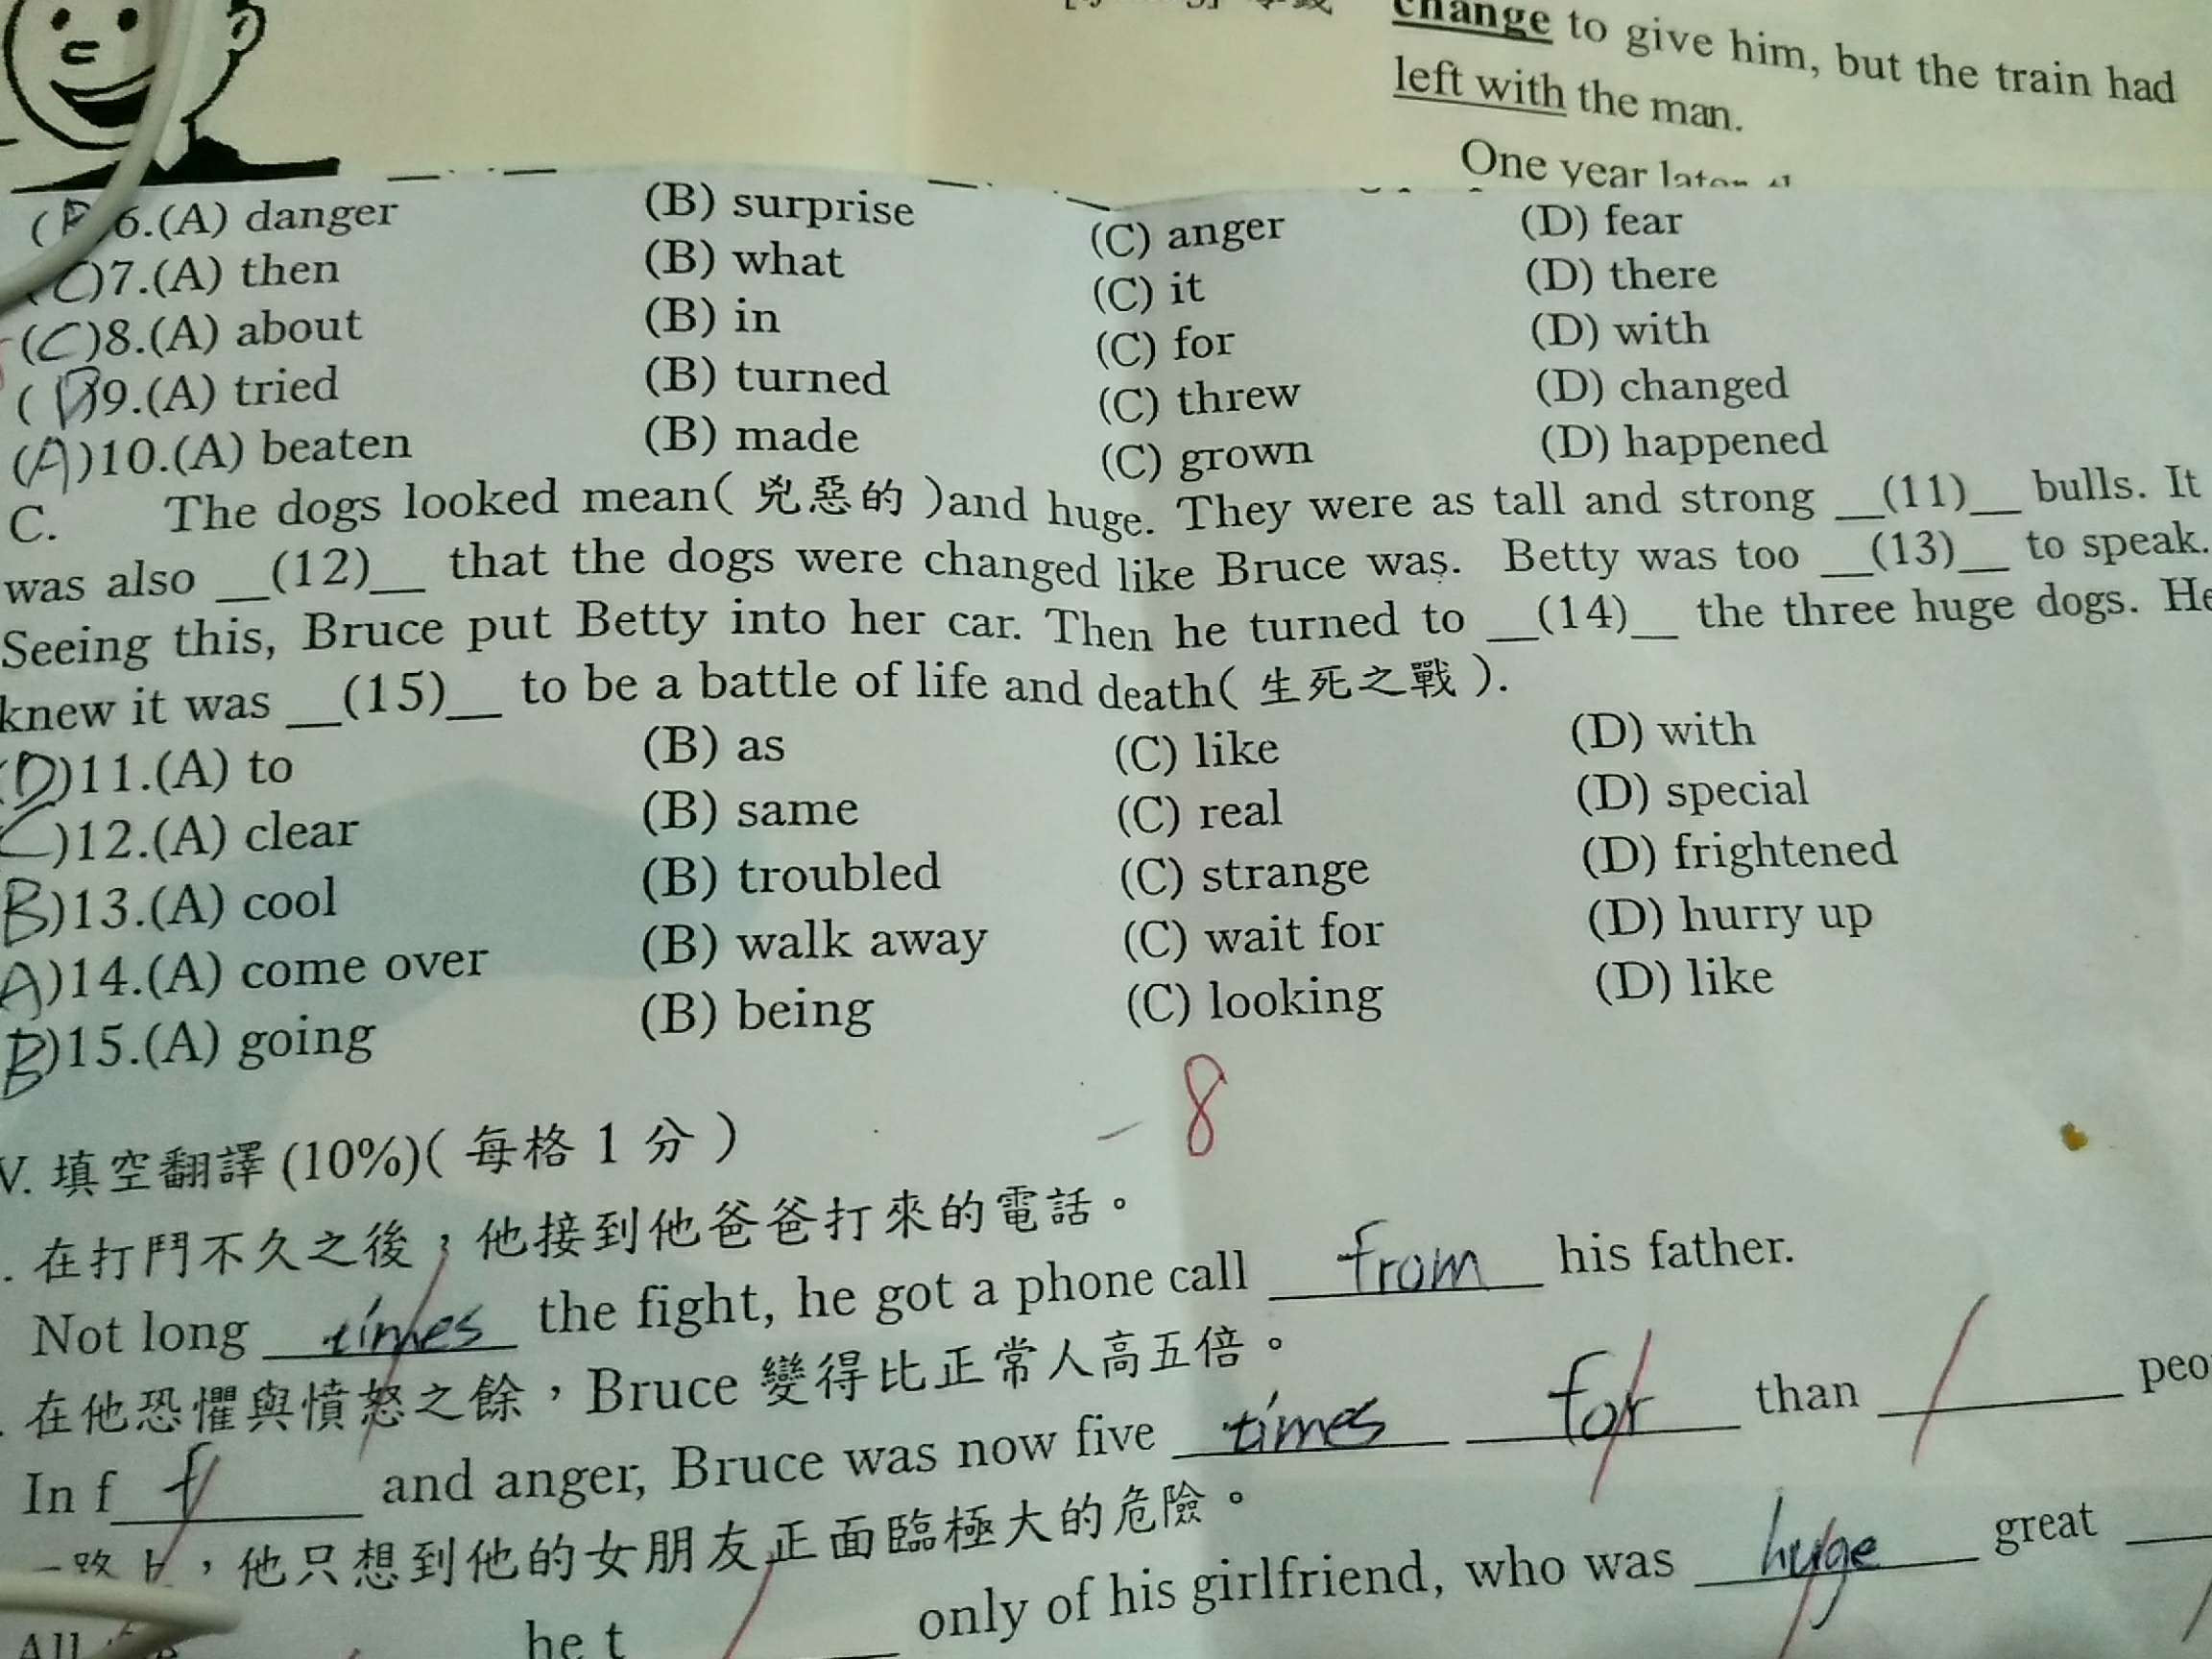 change to give him, but the train had
left with the man.
One year later
6.(A) danger (B) surprise (C) anger (D) fear
(C)7.(A) then (B) what (C) it (D) there
(C)8.(A) about (B) in (C) for (D) with
9.(A) tried (B) turned (C) threw (D) changed
(A)10.(A) beaten (B) made (C) grown (D) happened
C. The dogs looked mean( 兇惡的 )and huge. They were as tall and strong __(11)__ bulls. It
was also __(12)__ that the dogs were changed like Bruce was. Betty was too __(13)__ to speak.
Seeing this, Bruce put Betty into her car. Then he turned to __(14)__ the three huge dogs. He
knew it was __(15)__ to be a battle of life and death( 生死之戰 ).
(D)11.(A) to (B) as (C) like (D) with
C)12.(A) clear (B) same (C) real (D) special
B)13.(A) cool (B) troubled (C) strange (D) frightened
A)14.(A) come over (B) walk away (C) wait for (D) hurry up
B)15.(A) going (B) being (C) looking (D) like
-8
V. 填空翻譯 (10%)( 每格 1 分 )
. 在打鬥不久之後，他接到他爸爸打來的電話。
Not long times the fight, he got a phone call from his father.
. 在他恐懼與憤怒之餘，Bruce 變得比正常人高五倍。
In f f and anger, Bruce was now five times for than ____ peo
一路上，他只想到他的女朋友正面臨極大的危險。
All he t____ only of his girlfriend, who was huge great ____